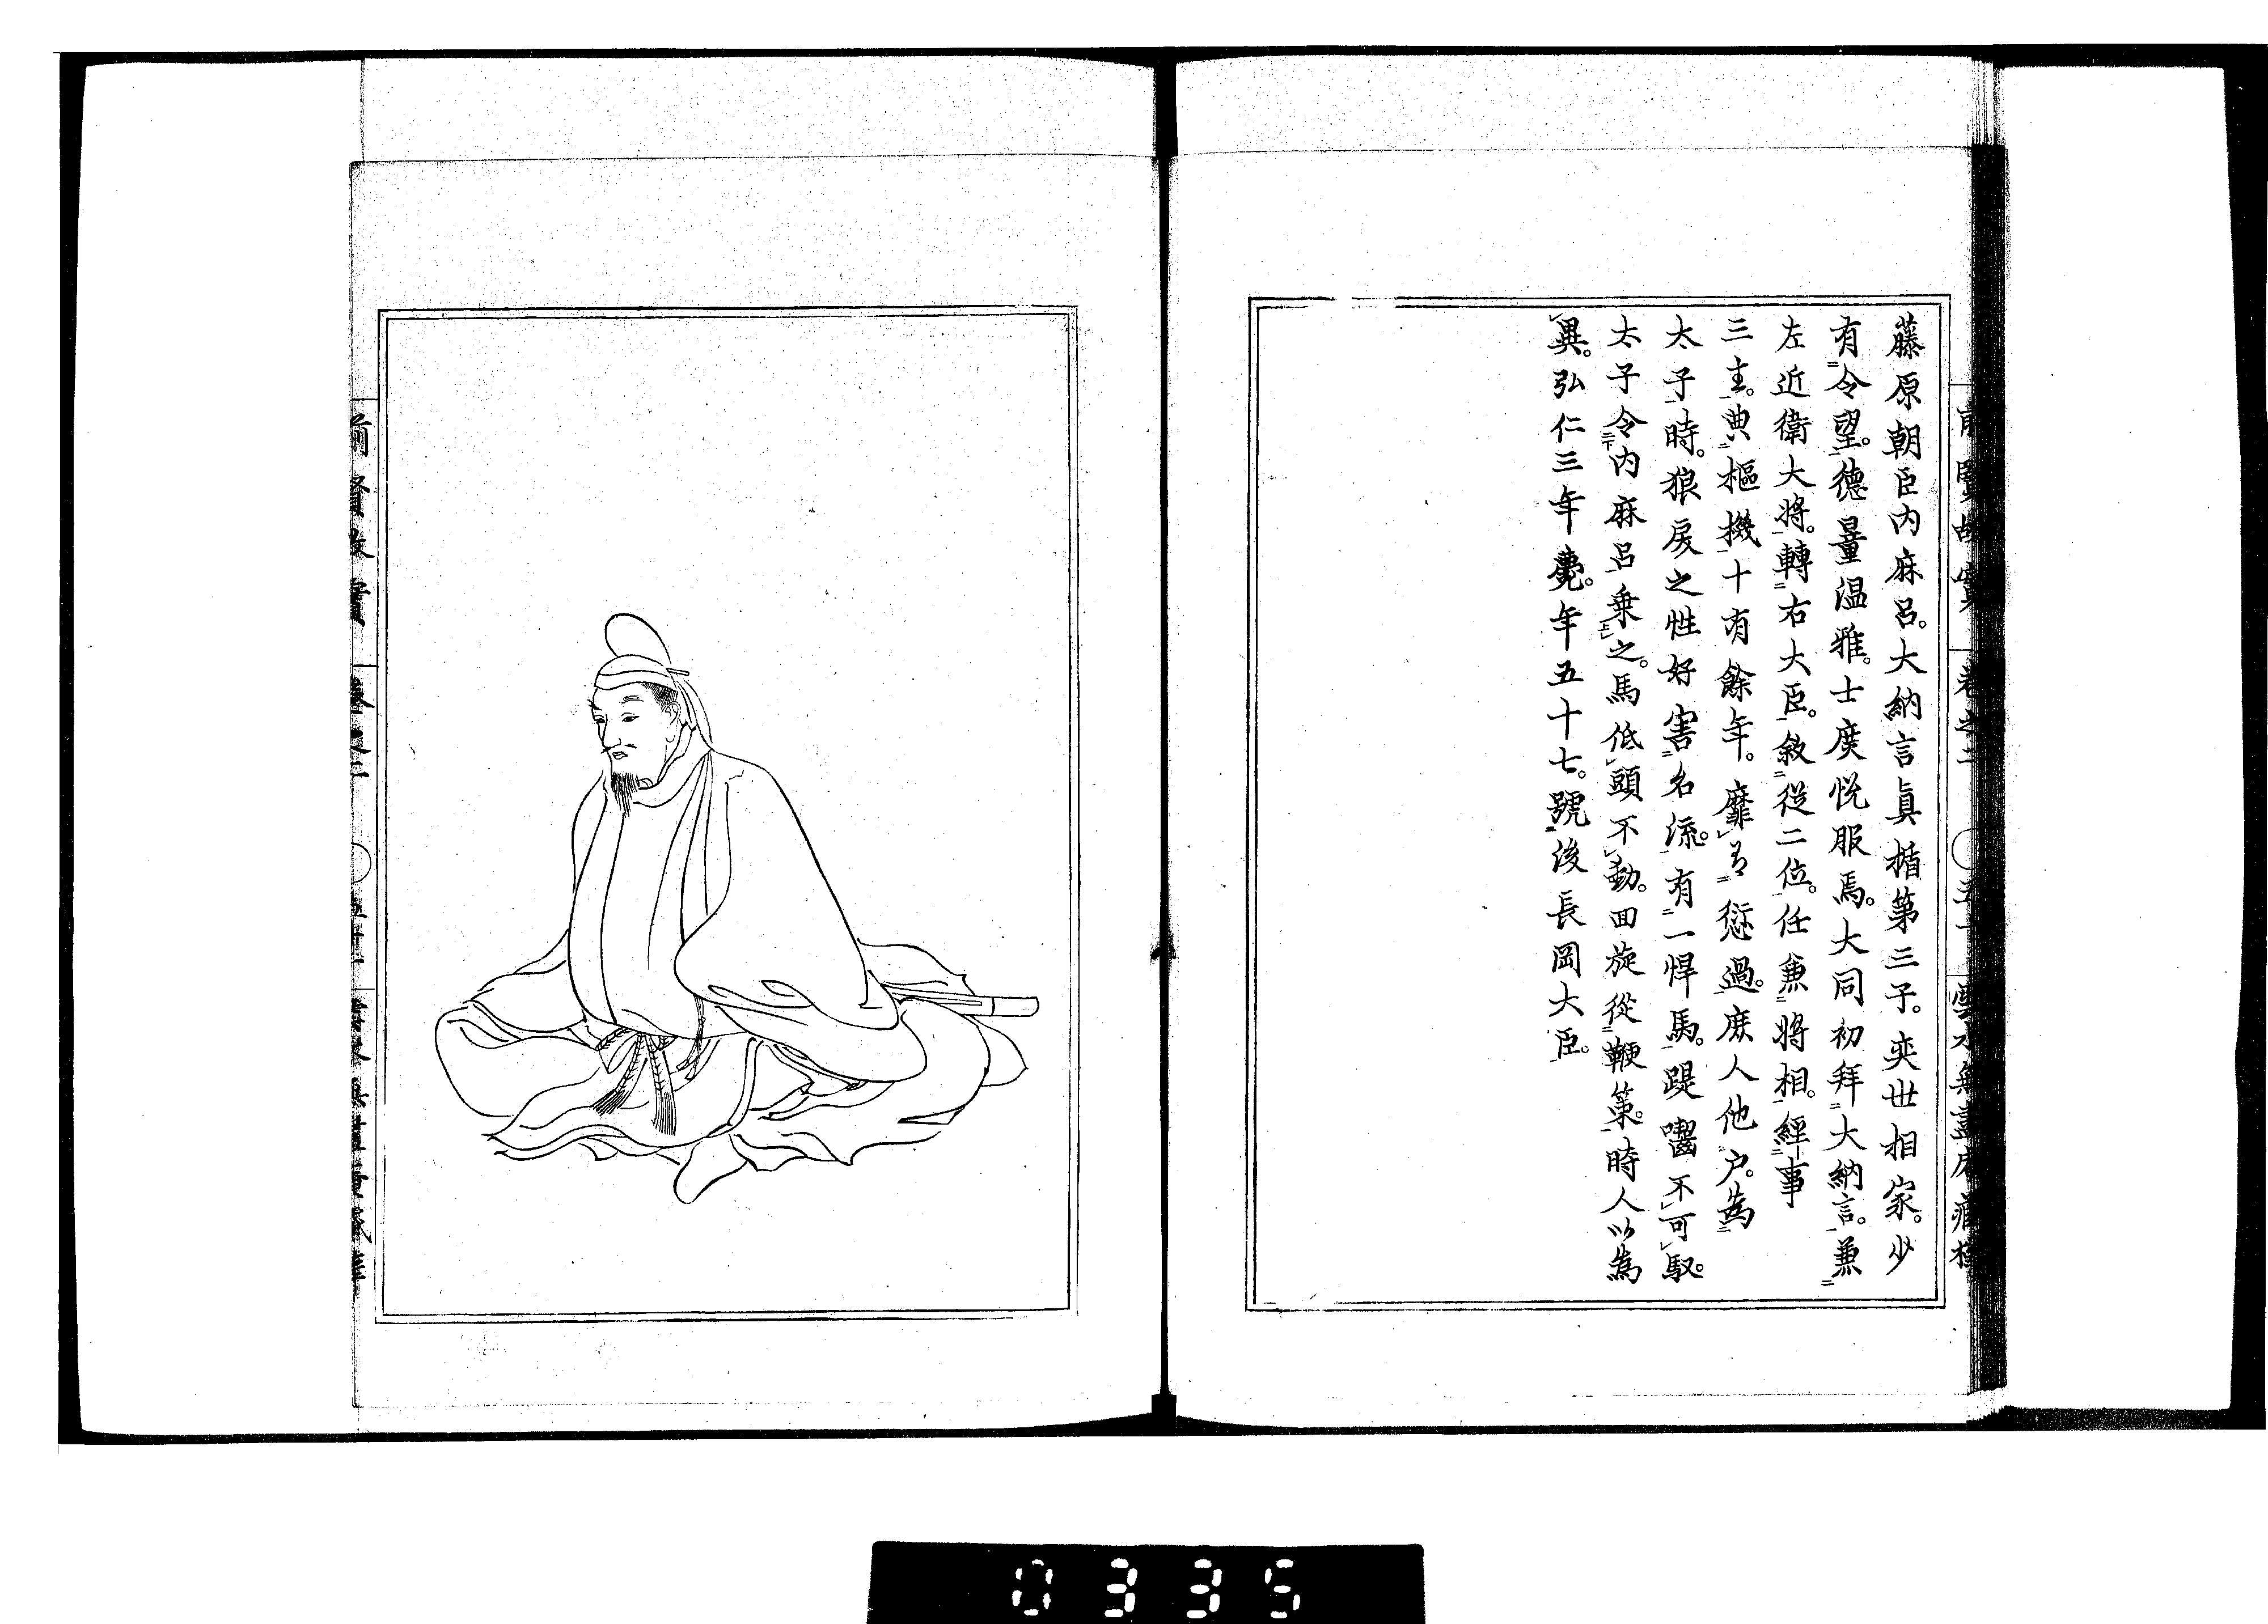 藤原朝臣内麻呂。大納言眞楯第三子。奕世相家。少
有令望。德量温雅。士庶悦服焉。大同初拜大納言。兼
左近衛大將。轉右大臣。敘從二位。任兼將相。經事
三主。典樞機十有餘年。靡有愆過。庶人他户。為
太子時。狼戻之性好害名流。有一悍馬。踶囓不可馭。
太子令内麻呂乗之。馬低頭不動。回旋從鞭策。時人以為
異。弘仁三年薨。年五十七。號後長岡大臣。
前賢故實
0335